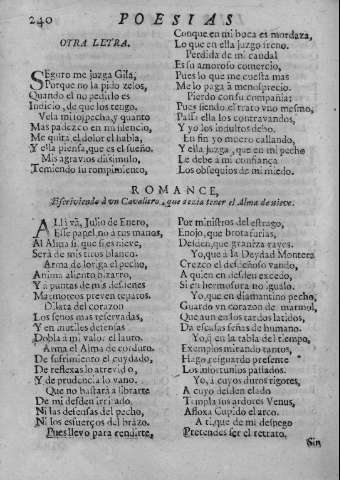 240 POESIAS
OTRA LETRA.
SEguro me juzga Gila,
Porque no la pido zelos,
Quando el no pedirlos es
Indicio, de que los tengo.
Vela mi sospecha, y quanto
Mas padezco en mi silencio,
Me quita el dolor el habla,
Y ella piensa, que es el sueño.
Mis agravios disimulo,
Temiendo su rompimiento,
Conque en mi boca es mordaza,
Lo que en ella juzgo freno.
Perdida de mi caudal
Es su amoroso comercio,
Pues lo que me cuesta mas
Me lo paga à menosprecio.
Pierdo con su compañia;
Pues siendo el trato vno mesmo,
Passa ella los contravandos,
Y yo los indultos debo.
En fin yo muero callando,
Y ella juzga, que en mi pecho
Le debe à mi confiança
Los obsequios de mi miedo.
ROMANCE,
Escriviendo à vn Cavallero, que dezia tener el Alma de nieve.
ALlà và, Julio de Enero,
Esse papel no a tus manos,
Al Alma si, que si es nieve,
Serà de mis tiros blanco.
Arma de loriga el pecho,
Anima aliento bizarro,
Y à puntas de mis desdenes
Marmoreos preven reparos.
Dilata del corazon
Los senos mas reservados,
Y en inutiles defensas
Dobla à mi valor el lauro.
Arma el Alma de cordura,
De sufrimiento el cuydado,
De reflexas lo atrevido,
Y de prudencia lo vano.
Que no bastarà à librarte
De mi desden irritado,
Ni las defensas del pecho,
Ni los esfuerços del brazo.
Pues llevo para rendirte,
Por ministros del estrago,
Enojo, que brota furias,
Desden, que graniza rayos.
Yo, que à la Deydad Montera
Crezco el desdeñoso vando,
A quien en desden excedo,
Si en hermosura no igualo.
Yo, que en diamantino pecho
Guardo vn corazon de marmol,
Que aun en los tardos latidos,
Da escasas señas de humano.
Yo, q̃ en la tabla del tiempo,
Exemplos mirando tantos,
Hago resguardo presente
Los infortunios passados.
Yo, à cuyos duros rigores,
A cuyo desden elado
Templa sus ardores Venus,
Afloxa Cupido el arco.
A ti, que de mi despego
Pretendes ser el retrato,
Sin